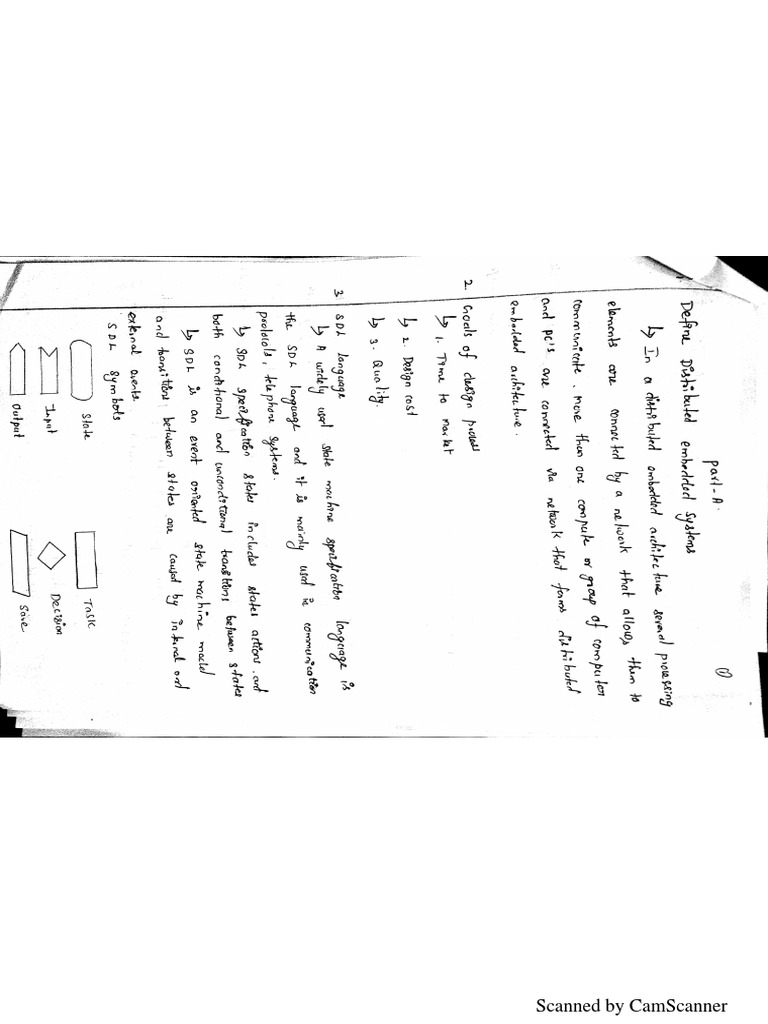 Part-A.
①
1. Define Distributed embedded Systems
↳ In a distributed embedded architecture several processing
elements are connected by a network that allows them to
communicate. more than one compute or group of computers
and pc's are connected via network that forms distributed
embedded architecture.
2. Goals of design process
↳ 1. Time to market
↳ 2. Design cost
↳ 3. Quality.
3. SDL language
↳ A widely used state machine specification language is
the SDL language and it is mainly used in communication
protocols, telephone systems.
↳ SDL specification states includes states actions and
both conditional and unconditional transitions between states
↳ SDL is an event oriented state machine model
and transitions between states are caused by internal and
external events.
SDL symbols
State
Task
Input
Decision
Output
Save
Scanned by CamScanner